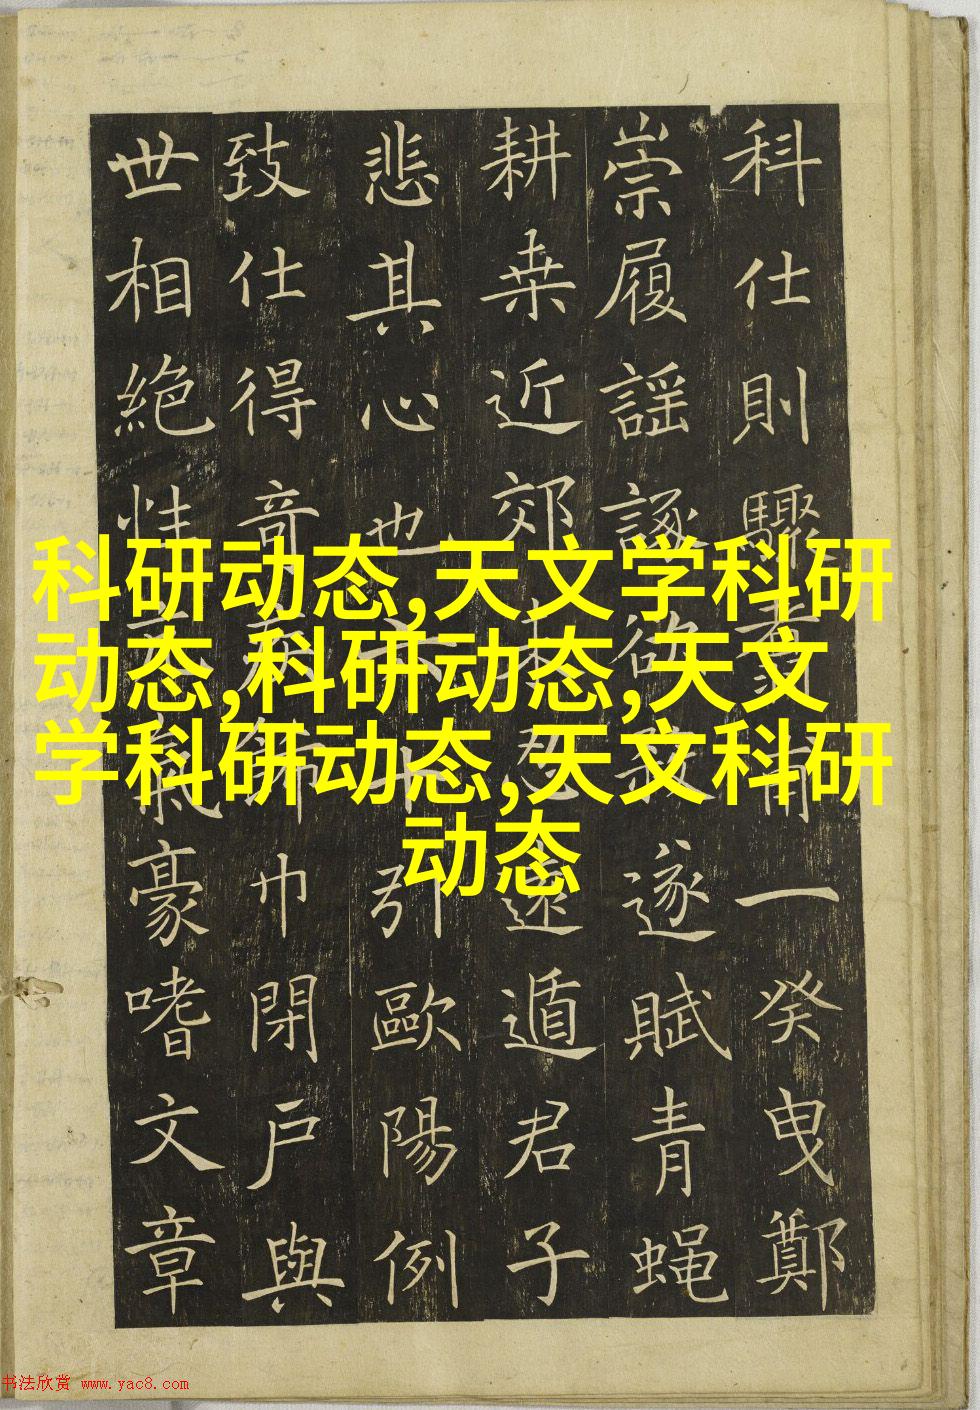 科仕則驟一癸曳鄭
崇履謡諑欲遂賦青蝇
耕桒近郊忍遠遁君子
悲其心也六十引歐陽例
致仕得奇巾閉戶與
世相絶性豪嗜文章
科研动态,天文学科研
动态,科研动态,天文
学科研动态,天文科研
动态
书法欣赏 www.yac8.com